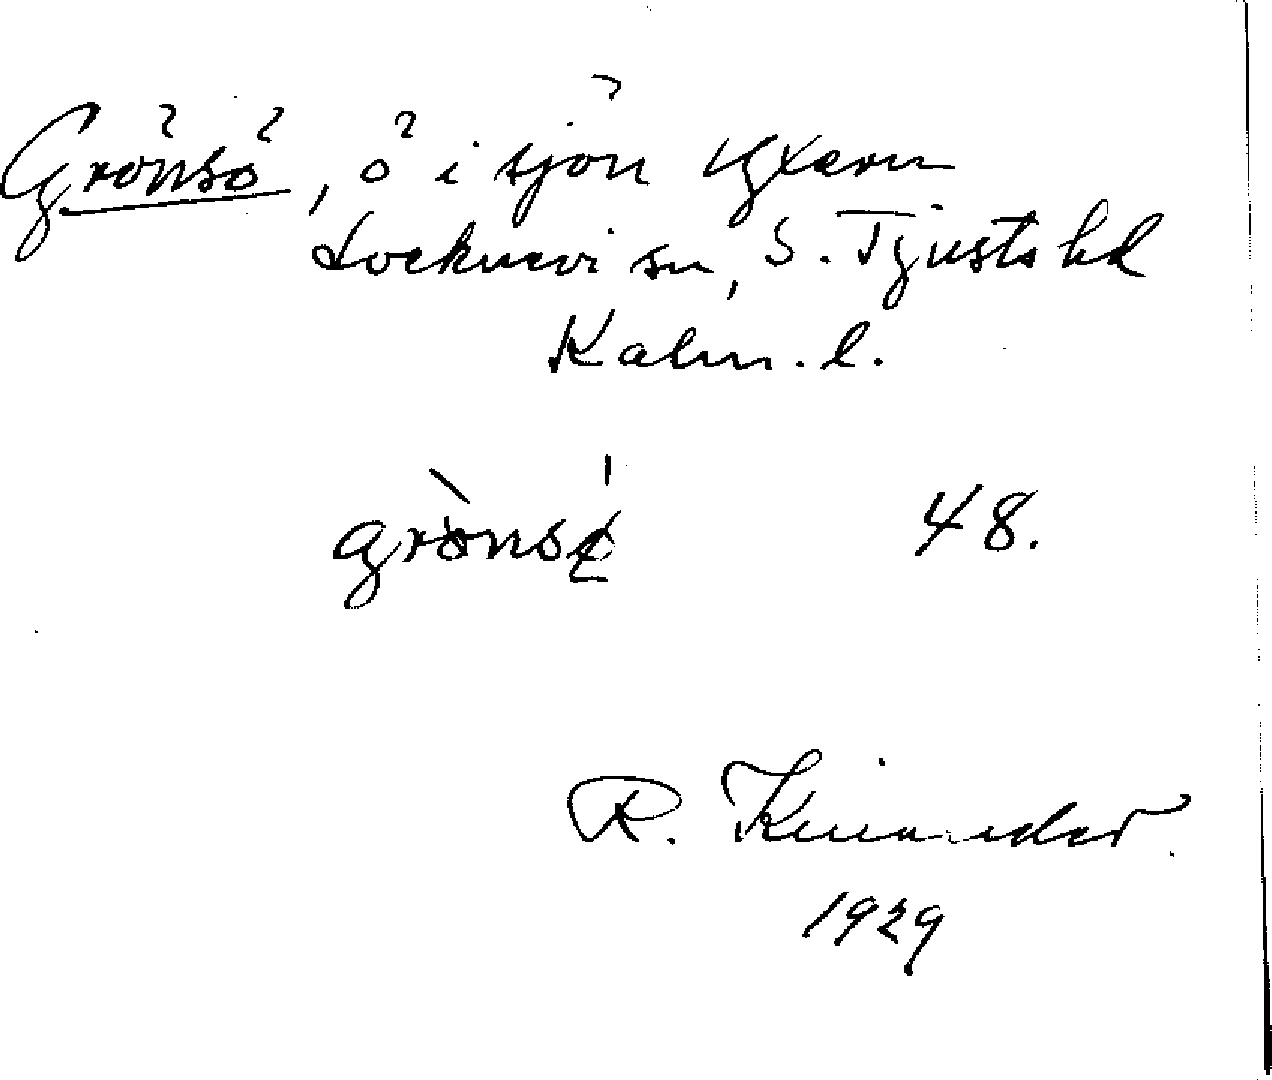 Grönsö, ö i sjön Yxern
Locknevi sn, S. Tjusts hd
Kalm. l.
grònsö́ 48.
R. Kinander
1929